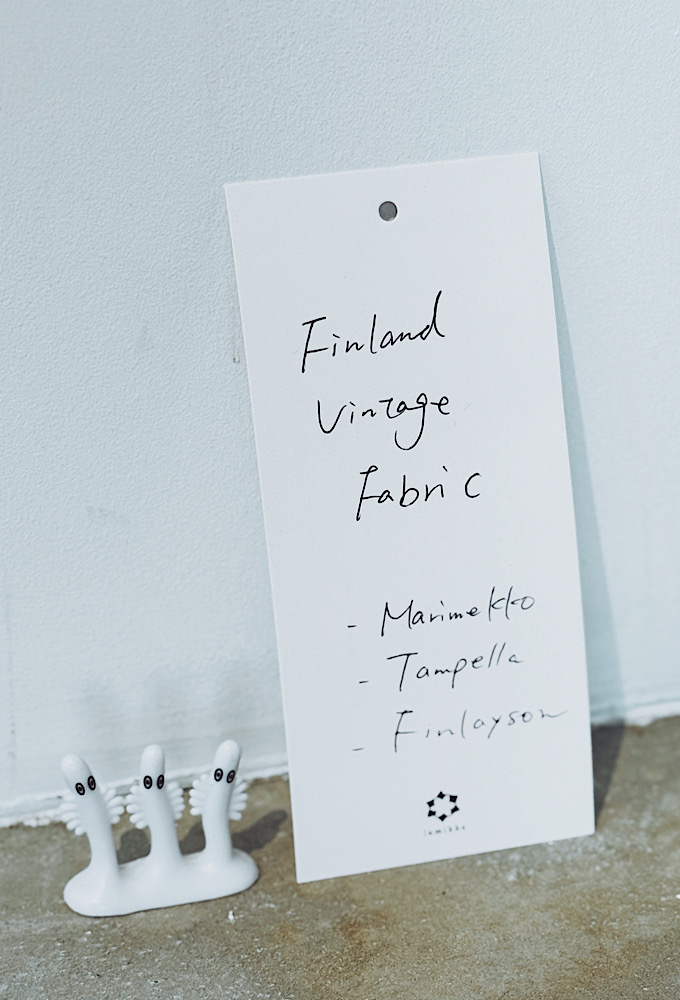 Finland
Vintage
Fabric
- Marimekko
- Tampella
- Finlayson